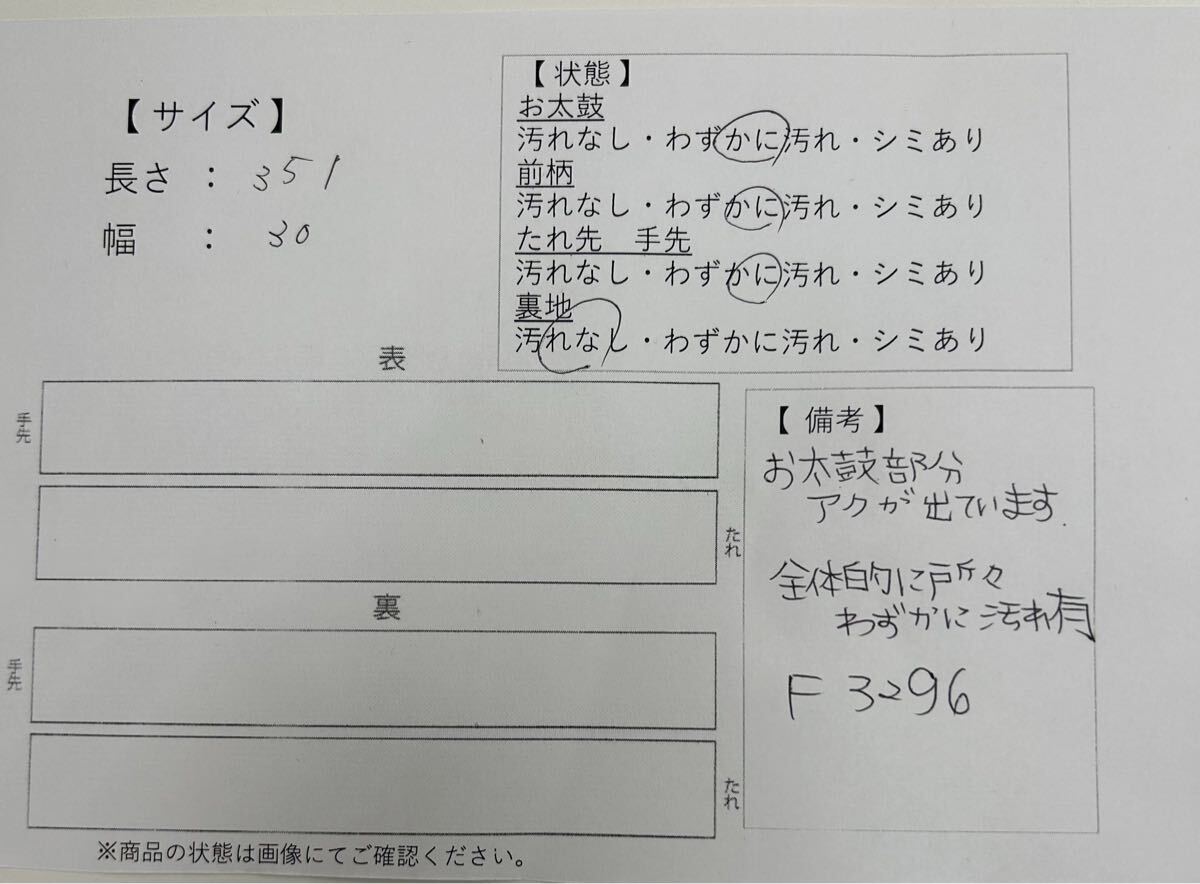 【サイズ】
長さ : 351
幅 : 30
【状態】
お太鼓
汚れなし・わずかに汚れ・シミあり
前柄
汚れなし・わずかに汚れ・シミあり
たれ先 手先
汚れなし・わずかに汚れ・シミあり
裏地
汚れなし・わずかに汚れ・シミあり
表
手先
たれ
裏
手先
たれ
※商品の状態は画像にてご確認ください。
【備考】
お太鼓部分
アクが出ています.
全体的に所々
わずかに汚れ有
F3296